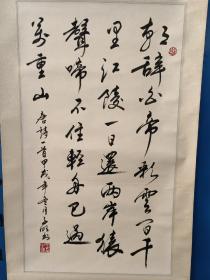 朝辭白帝彩雲間千
里江陵一日還兩岸猿
聲啼不住輕舟已過
萬重山 唐詩一首甲戌年